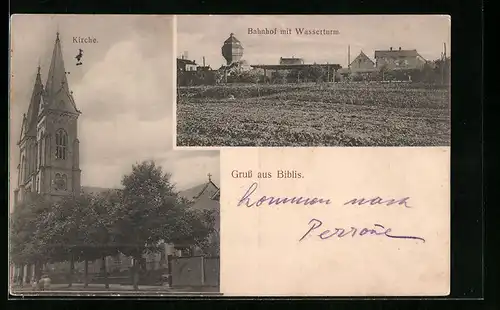 Kirche.
Bahnhof mit Wasserturm.
Gruß aus Biblis.
kommen nach
Perrone